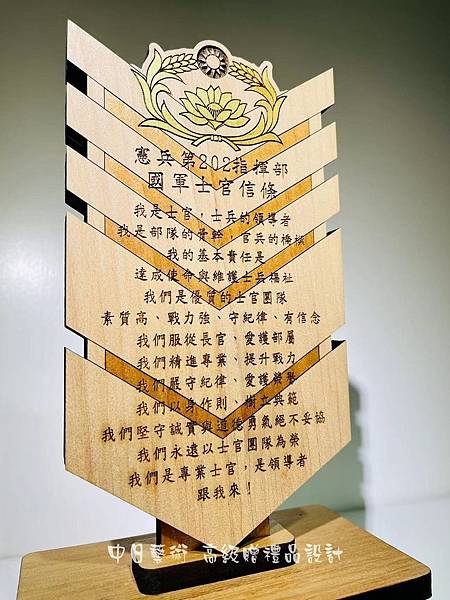 憲兵第202指揮部
國軍士官信條
我是士官，士兵的領導者
我是部隊的骨幹，官兵的橋樑
我的基本責任是
達成使命與維護士兵福祉
我們是優質的士官團隊
素質高、戰力強、守紀律、有信念
我們服從長官、愛護部屬
我們精進專業、提升戰力
我們嚴守紀律、愛護榮譽
我們以身作則、樹立典範
我們堅守誠實與道德勇氣絕不妥協
我們永遠以士官團隊為榮
我們是專業士官，是領導者
跟我來！
中日藝術 高級贈禮品設計